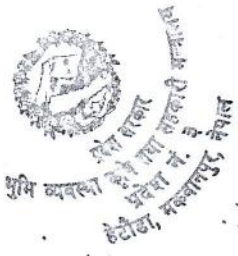 प्रदेश सरकार
भूमि व्यवस्था कृषि तथा सहकारी मन्त्रालय
प्रदेश नं. ३
हेटौंडा, मकवानपुर, नेपाल